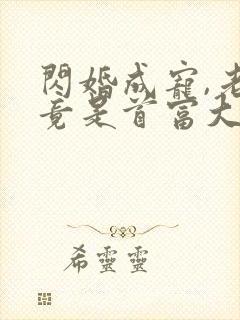 閃婚成寵,老
竟是首富大
希靈靈